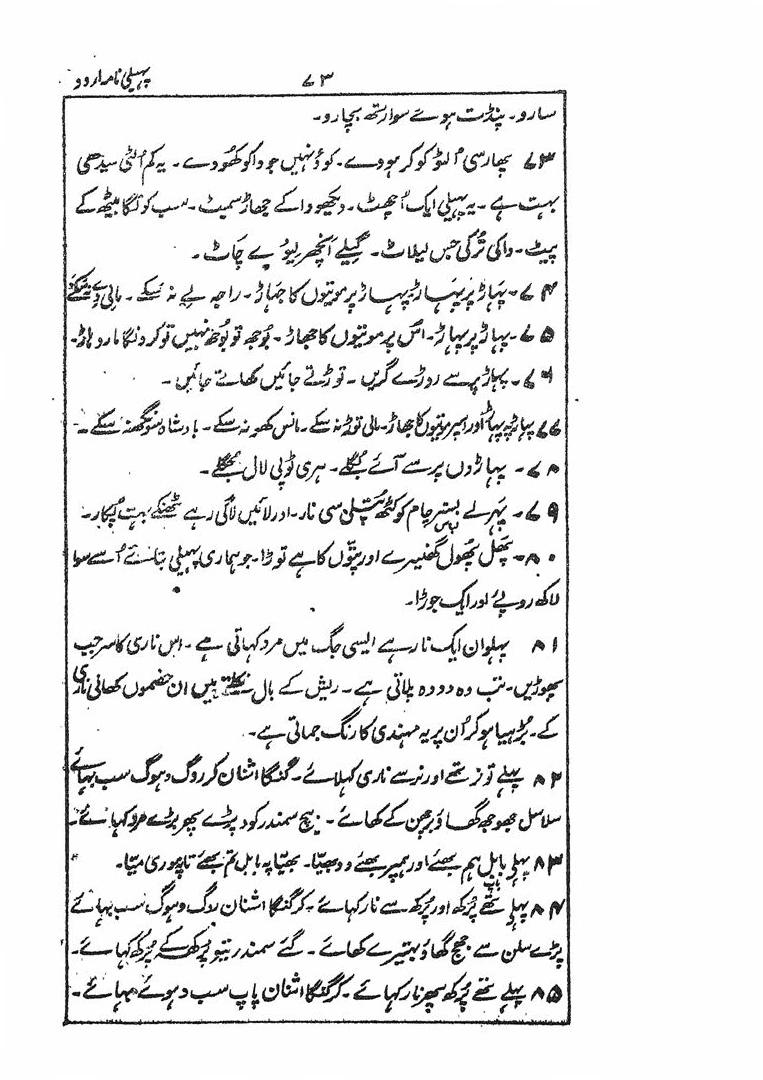 پہیلی نامہ اردو ۷۳
سارو۔ پنڈت ہوے سوارتھ بچارو۔
۷۳ پھارسی اُلٹو کو کر ہووے۔ کوؤ نہیں جو واکو کھُووے۔ یہ کم اُلٹی سیدھی
بہت ہے۔ یہ پہیلی ایک اُچھٹ۔ دیکھو وا کے جھاڑ سمیٹ۔ سب کو لگا بیٹھ کے
پیٹ۔ واکی تُرکی لیلاٹ۔ گیلے چاٹ۔
۷۴۔ پہاڑ پر پہاڑ پہاڑ پر موتیوں کا جھاڑ۔ راجہ لے نہ سکے۔ مالی دے نہ سکے
۷۵۔ پہاڑ پر پہاڑ۔ اس پر موتیوں کا جھاڑ۔ بُوجھ تو بُوجھ نہیں تو کر دنگا مار دھاڑ۔
۷۶۔ پہاڑ پر سے روڑے گریں۔ توڑتے جائیں کھاتے جائیں۔
۷۷ پہاڑ پہ پہاڑ اور اسپر موتیوں کا جھاڑ۔ مالی توڑ نہ سکے۔ مانس کھو نہ سکے۔ بادشاہ سونگھ نہ سکے۔
۷۸۔ پہاڑوں پر سے آئے بُگلے۔ ہری ٹوپی لال جھگلے۔
۷۹۔ پہرلے بستر چام کو کٹھ پُتلی سی نار۔ اور لائیں لاگی رہے بہت پُکار۔
۸۰۔ پھل پھول گھنیرے اور پتّوں کا ہے توڑا۔ جو ہماری پہیلی بتائے اُسے سوا
لاکھ روپے اور ایک جوڑا۔
۸۱ پہلوان ایک نار ہے ایسی جگ میں مرد کہاتی ہے۔ اس ناری کا سر جب
پھوڑیں۔ تب وہ دودھ پلاتی ہے۔ ریش کے بال نکلتے ہیں ان خصموں کھانی ناری
کے۔ بڑھیا ہو کر اُن پر یہ مہندی کا رنگ جماتی ہے۔
۸۲ پہلے تو نر تھے اور نر سے ناری کہلائے۔ گنگا اشنان کر روگ دھوگ سب بہائے
سلاسل جھوجھ گھاؤ برچھن کے کھائے۔ بیچ سمندر کود پڑے پھر بڑے مرد کہائے۔
۸۳ پہلی بابل ہم بھئے اور ہمپر بھئے ودبھیّا۔ بھیّا پہ بابل تم بھئے تا پچھوری میّا۔
۸۴ پہلی تھے پُرکھ اور پُرکھ سے نار کہائے۔ کر گنگا اشنان روگ و ہوگ سب بہائے
پڑے سلن سے جھج گھاؤ بہتیرے کھائے۔ گئے سمندر تیو پُرکھ کے پُرکھ کہائے۔
۸۵ پہلے تھے پُرکھ پھر نار کہائے۔ کر گنگا اشنان پاپ سب دہوئے مہائے۔